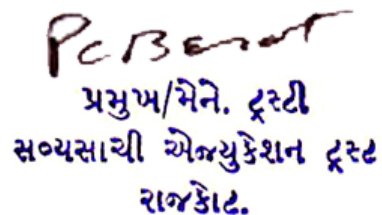 પ્રમુખ/મેને. ટ્રસ્ટી
સવ્યસાચી એજ્યુકેશન ટ્રસ્ટ
રાજકોટ.